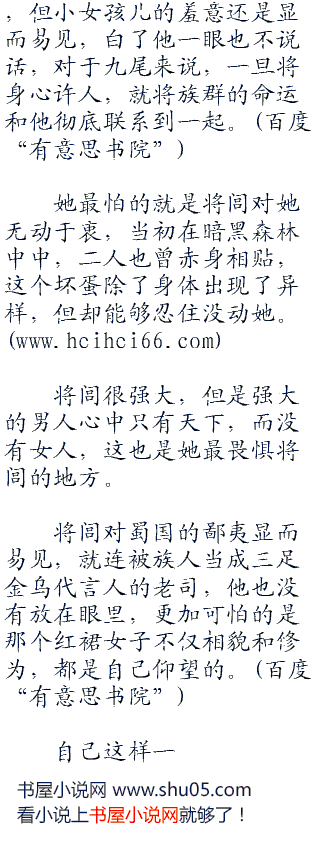 ，但小女孩儿的羞意还是显
而易见，白了他一眼也不说
话，对于九尾来说，一旦将
身心许人，就将族群的命运
和他彻底联系到一起。(百度
“有意思书院”)
她最怕的就是将闾对她
无动于衷，当初在暗黑森林
中中，二人也曾赤身相贴，
这个坏蛋除了身体出现了异
样，但却能够忍住没动她。
(www.hcihci66.com)
将闾很强大，但是强大
的男人心中只有天下，而没
有女人，这也是她最畏惧将
闾的地方。
将闾对蜀国的鄙夷显而
易见，就连被族人当成三足
金乌代言人的老司，他也没
有放在眼里，更加可怕的是
那个红裙女子不仅相貌和修
为，都是自己仰望的。(百度
“有意思书院”)
自己这样一
书屋小说网 www.shu05.com
看小说上书屋小说网就够了！